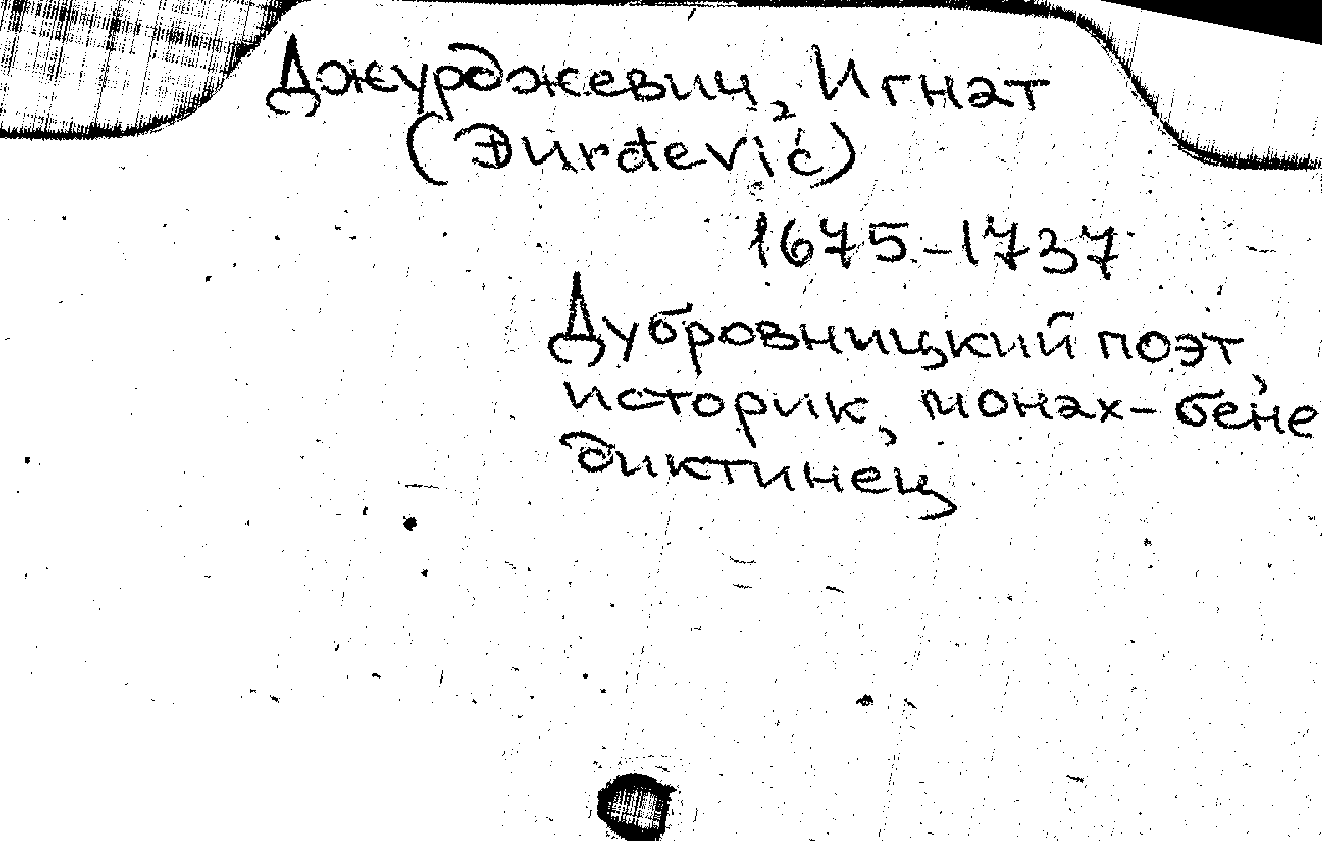 Джурджевич, Игнат
(Đurđević)
1675-1737
Дубровницкий поэт,
историк, монах-бене
диктинец